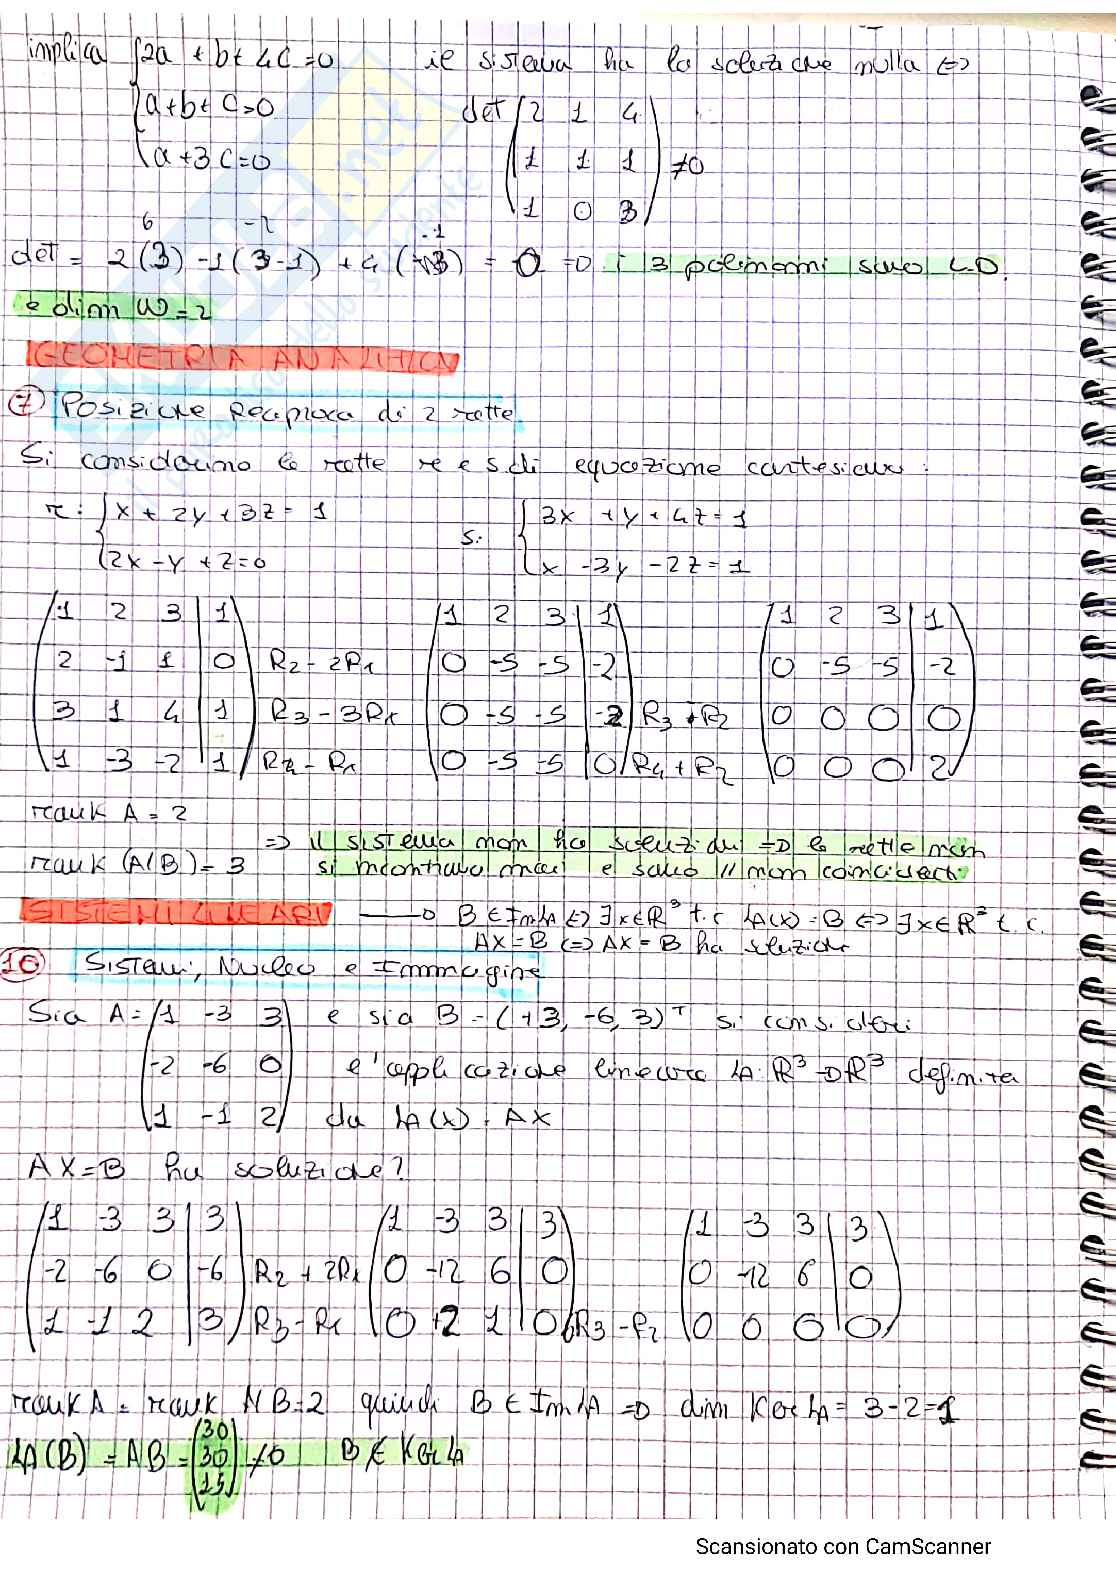 implica { 2a + b + 4c = 0 il sistema ha la soluzione nulla ⇔
a + b + c = 0 det ( 2 1 4
a + 3c = 0 1 1 1 ) ≠ 0
1 0 3
6 -2 -1
det = 2(3) - 1(3-1) + 4( ) = 0 = 0 i 3 polinomi sono L.D.
e dim W = 2
GEOMETRIA ANALITICA
7 Posizione Reciproca di 2 rette
Si considerino le rette r e s di equazione cartesiana:
r: { x + 2y + 3z = 1 s: { 3x + y + 4z = 1
2x - y + z = 0 x - 3y - 2z = 1
1 2 3 | 1 1 2 3 | 1 1 2 3 | 1
2 -1 1 | 0 R2 - 2R1 0 -5 -5 | -2 0 -5 -5 | -2
3 1 4 | 1 R3 - 3R1 0 -5 -5 | -2 R3 + R2 0 0 0 | 0
1 -3 -2 | 1 R4 - R1 0 -5 -5 | 0 R4 + R2 0 0 0 | 2
rank A = 2
⇒ il sistema non ha soluzioni ⇒ le rette non
rank (A|B) = 3 si incontrano mai e sono // non coincidenti
SISTEMI LINEARI → B ∈ Im LA ⇔ ∃ x ∈ R³ t.c. LA(x) = B ⇔ ∃ x ∈ R³ t.c.
AX = B ⇔ AX = B ha soluzione
10 Sistemi, Nucleo e Immagine
Sia A = ( 1 -3 3 ) e sia B = (+3, -6, 3)ᵀ si consideri
-2 -6 0 e l'applicazione lineare LA: R³ → R³ definita
1 -1 2 da LA(x) = AX
AX = B ha soluzione?
1 -3 3 | 3 1 -3 3 | 3 1 -3 3 | 3
-2 -6 0 | -6 R2 + 2R1 0 -12 6 | 0 0 -12 6 | 0
1 -1 2 | 3 R3 - R1 0 +2 1 | 0 6R3 - R2 0 0 0 | 0
rank A = rank A|B = 2 quindi B ∈ Im LA ⇒ dim Ker LA = 3 - 2 = 1
LA(B) = AB = ( 30 30 15 ) ≠ 0 B ∉ Ker LA
Scansionato con CamScanner